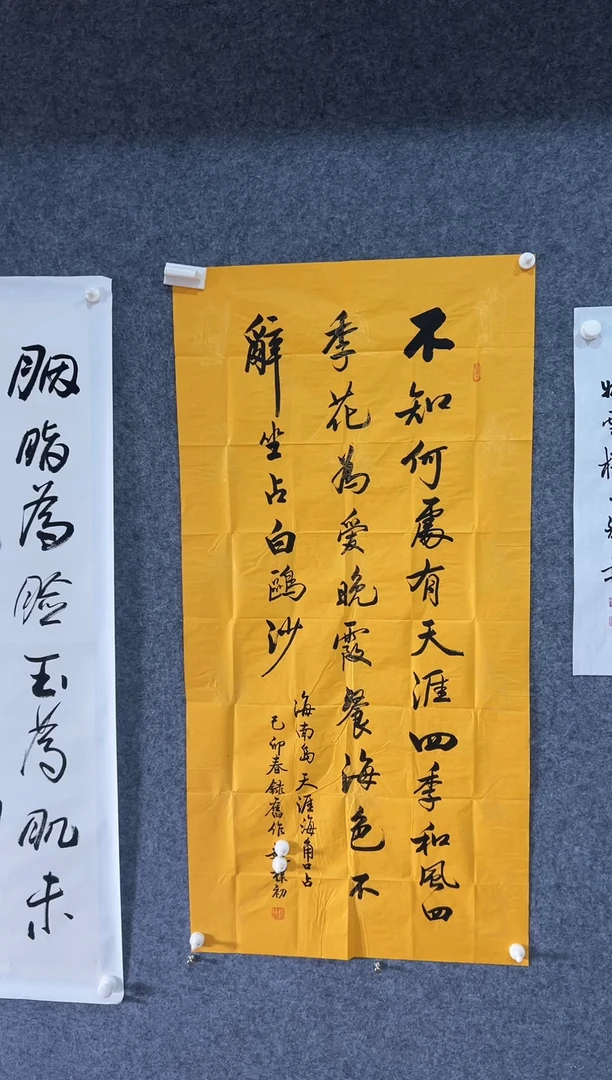 不知何處有天涯四季和風四
季花為愛晚霞餐海色不
辭坐占白鷗沙
海南島天涯海角口占
己卯春録舊作 初
胭脂為脸玉為肌未